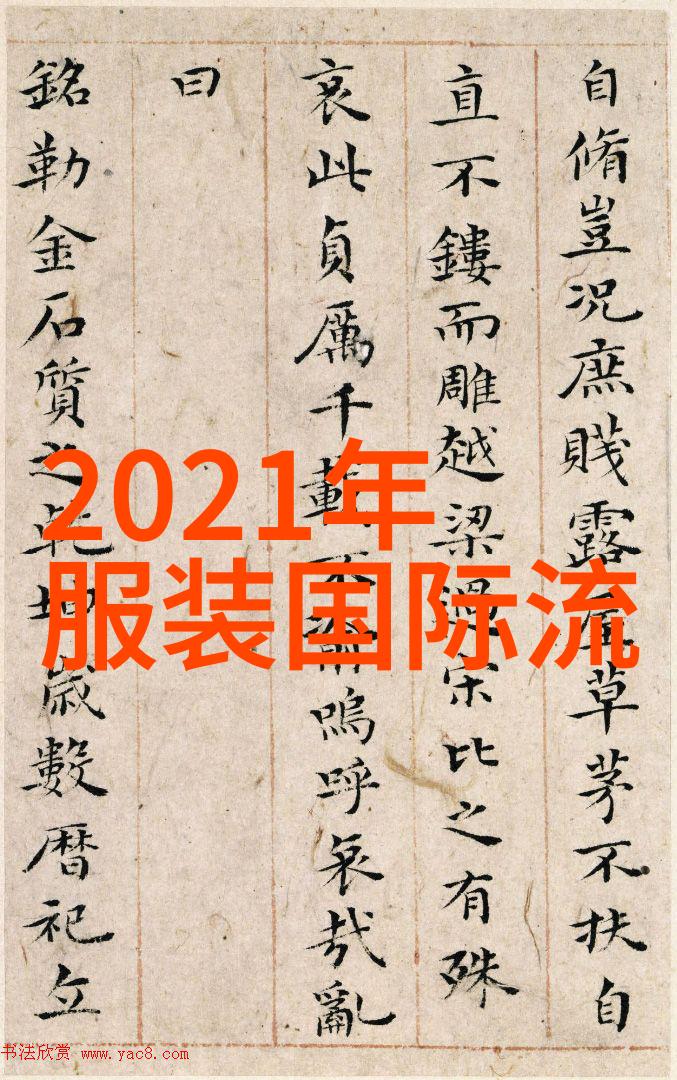 自脩豈况庶賤露屋草茅不扶自
直不鏤而雕越梁過宋比之有殊
哀此貞厲千載不渝嗚呼哀哉亂
曰
銘勒金石質之乾坤歲數暦祀立
2021年
服装国际流
书法欣赏 www.yac8.com